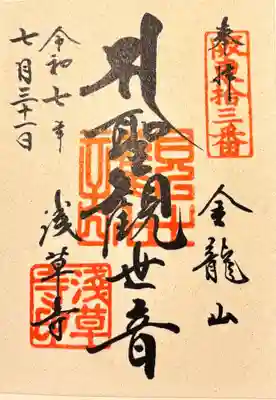 坂東拾三番
奉拝
金龍山
聖観世音
浅草寺
淺草
寺印
令和七年
七月三十一日